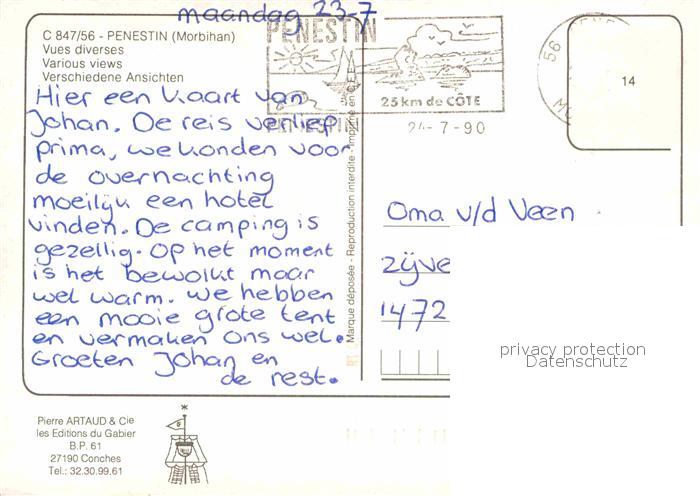 maandag 23-7
C 847/56 - PENESTIN (Morbihan)
Vues diverses
Various views
Verschiedene Ansichten
Hier een kaart van
Johan. De reis verliep
prima, we konden voor
de overnachting
moeilijk een hotel
vinden. De camping is
gezellig. Op het moment
is het bewolkt maar
wel warm. We hebben
een mooie grote tent
en vermaken ons wel.
Groeten Johan en
de rest.
PENESTIN
PENESTIN
25 km de CÔTE
24-7-90
56
14
Marque déposée - Reproduction interdite - Imprimé en C.E.E.
Oma v/d Veen
zijve
1472
privacy protection
Datenschutz
Pierre ARTAUD & Cie
les Editions du Gabier
B.P. 61
27190 Conches
Tel.: 32.30.99.61